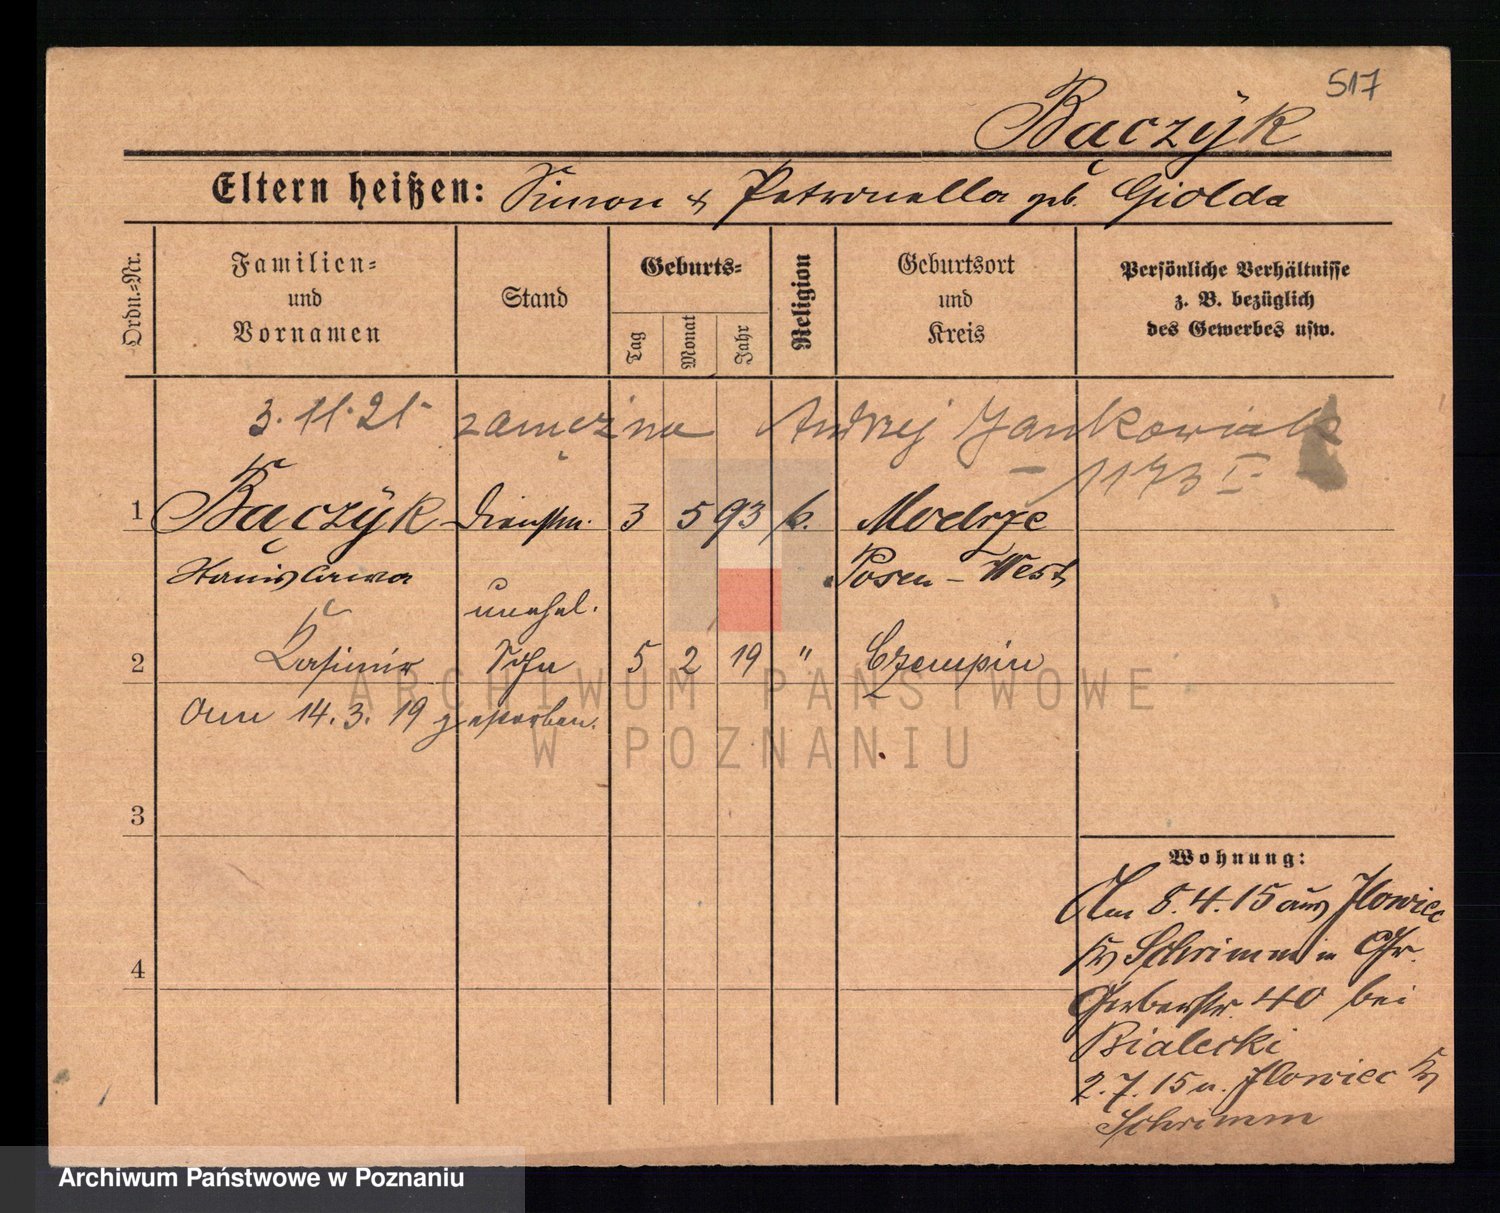 517
Bączÿk
Eltern heißen: Simon & Petronella geb. Giolda
Ordn.=Nr.
Familien=
und
Vornamen
Stand
Geburts=
Tag
Monat
Jahr
Religion
Geburtsort
und
Kreis
Persönliche Verhältnisse
z. B. bezüglich
des Gewerbes usw.
3.11.21 zamężna Andrzej Jankowiak
1173 I
1 Bączÿk Dienstm. 3 5 93 k. Modrze
Stanislawa Posen-West
unehel.
2 Kasimir Sohn 5 2 19 " Czempin
Am 14.3.19 gestorben.
3
4
Wohnung:
Am 8.4.15 aus Ilowiec
Kr Schrimm n Gr.
Gerberstr. 40 bei
Bialecki
2.7.15 n. Ilowiec Kr
Schrimm
ARCHIWUM PAŃSTWOWE
W POZNANIU
Archiwum Państwowe w Poznaniu